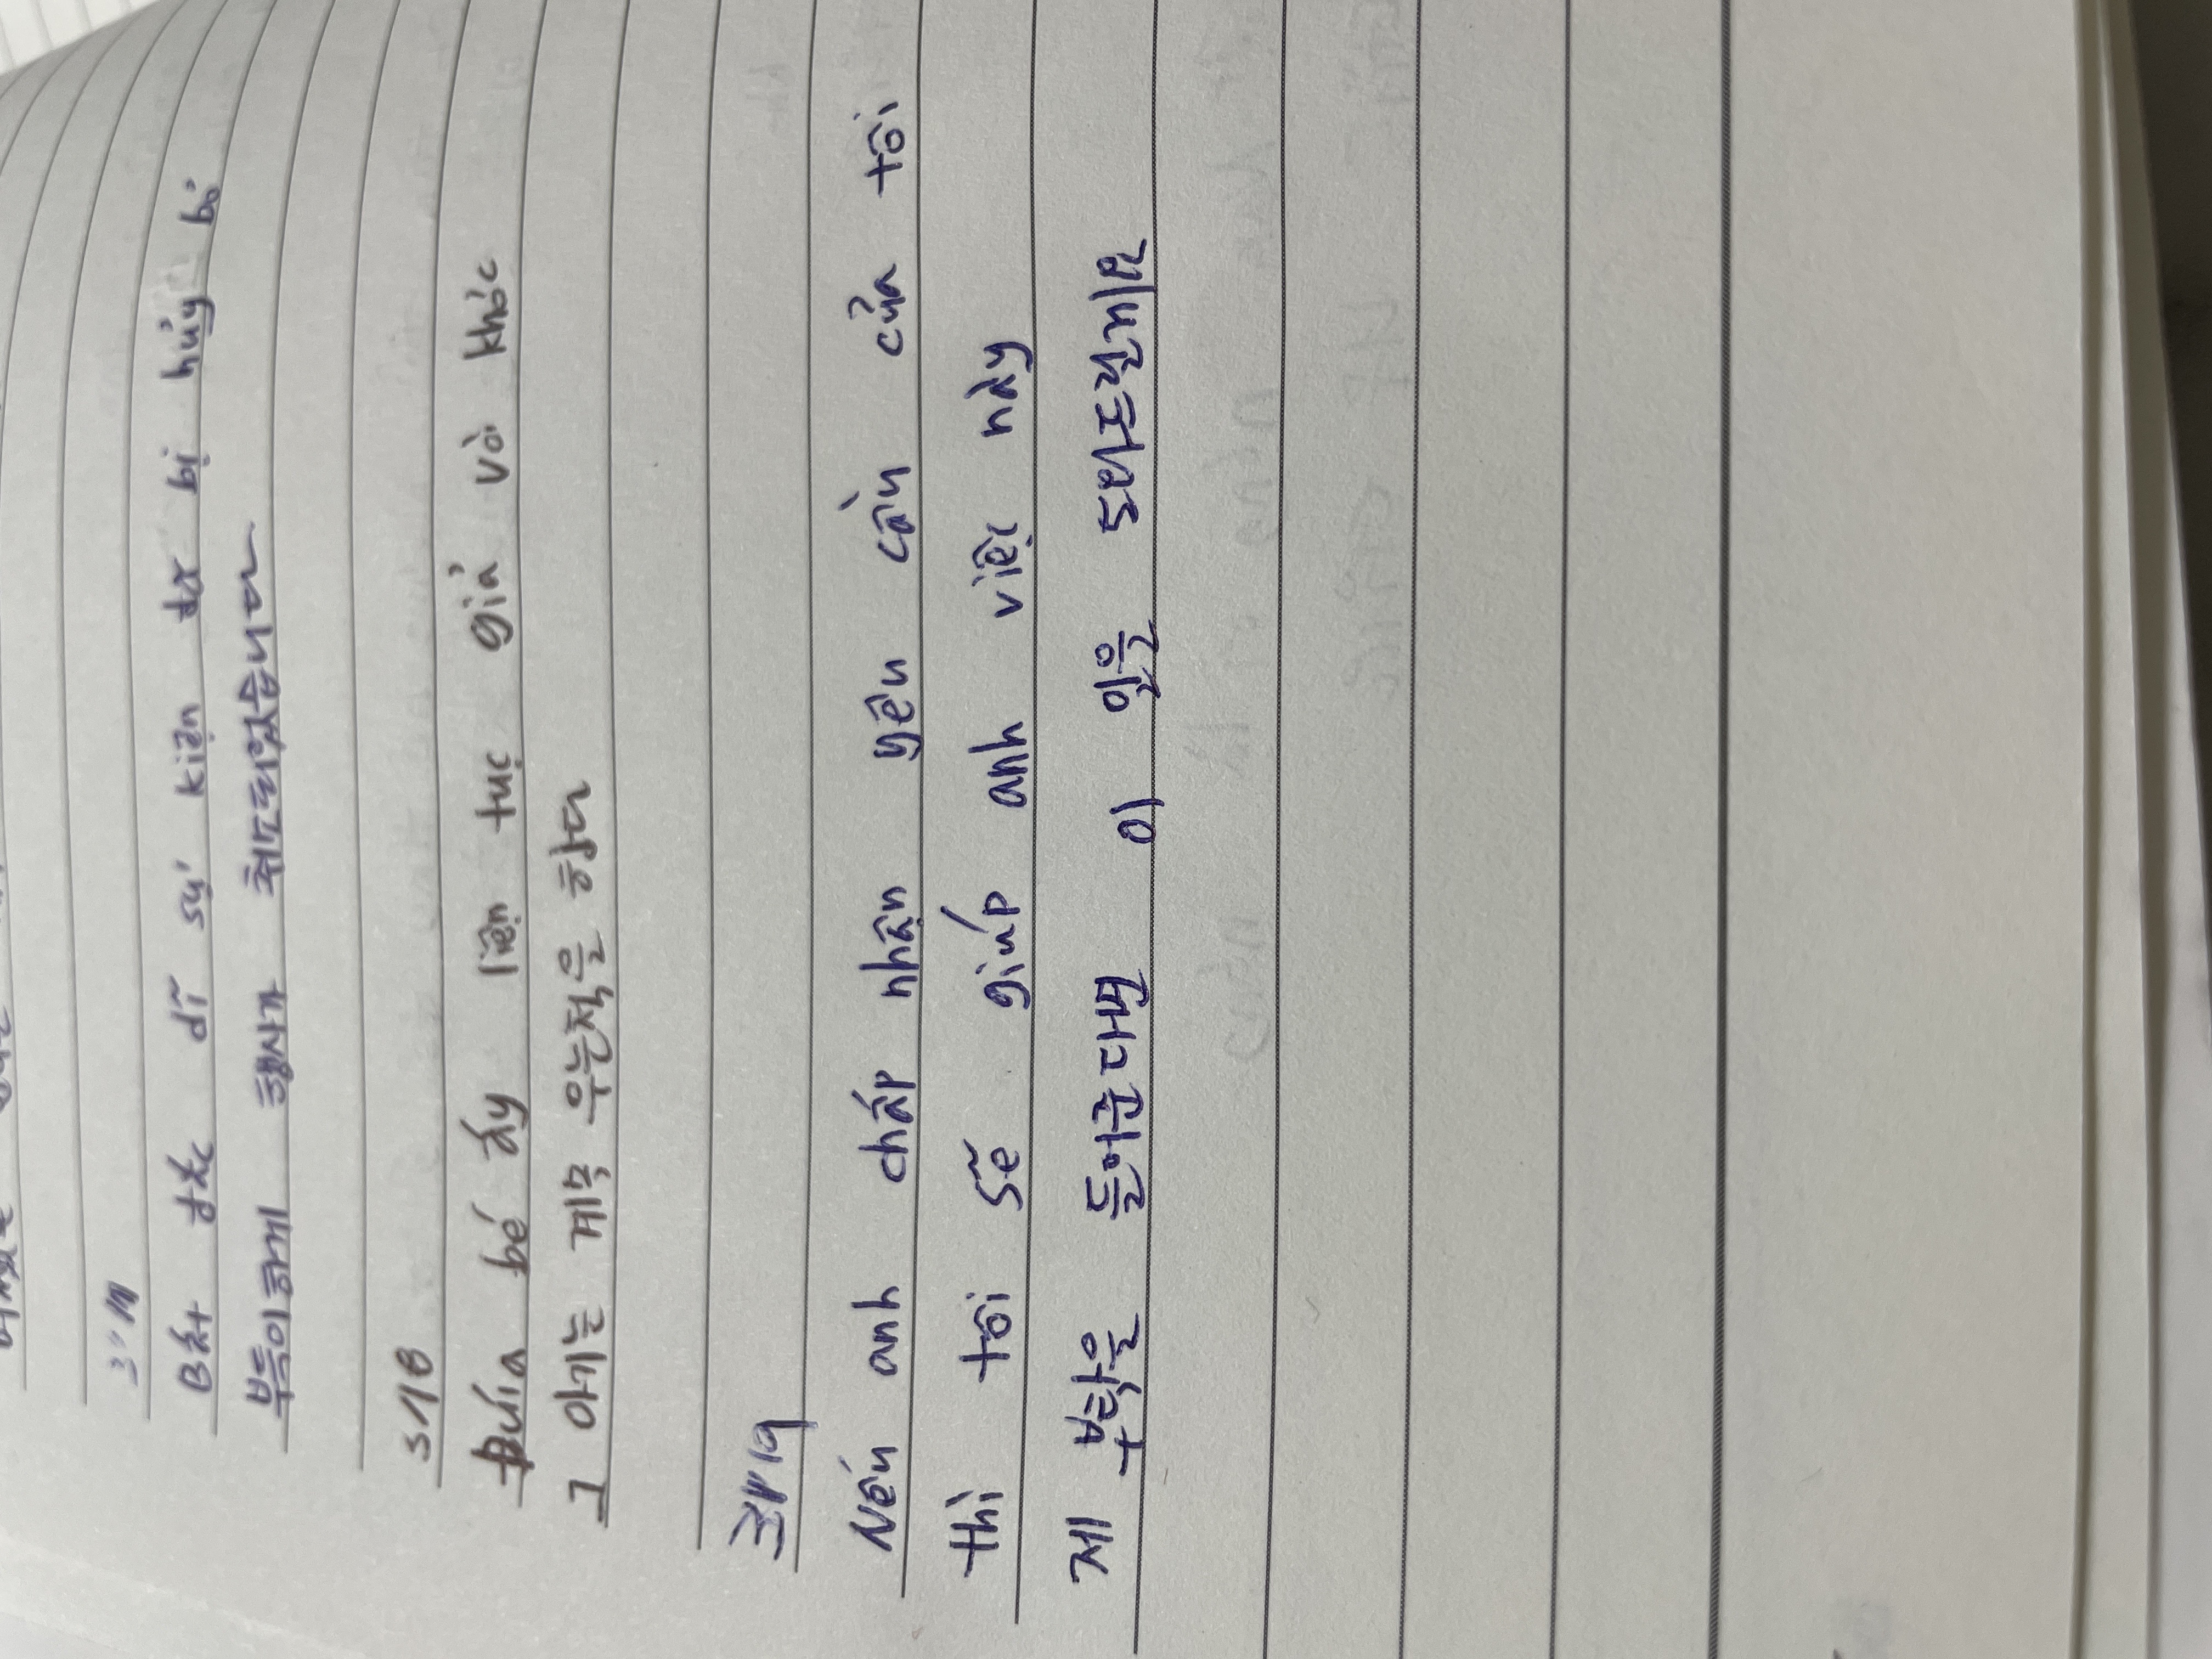 Bất đắc dĩ sự kiện đx bị hủy bỏ
부득이하게 행사가 취소되었습니다
3/18
Đứa bé ấy liên tục giả vờ khóc
그 아께는 계속 우는척을 한다
3/19
Nếu anh chấp nhận yêu cầu của tôi
thì tôi sẽ giúp anh việc này
제 부탁을 들어준다면 이 일은 도와드릴게요